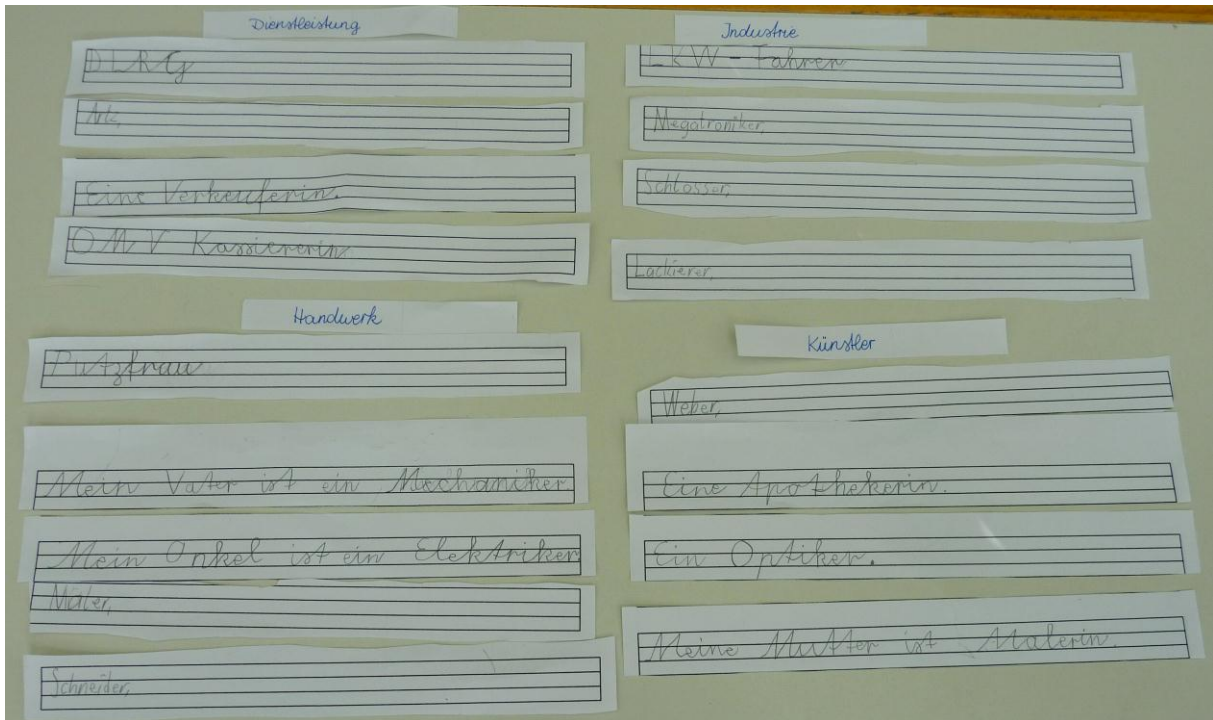 Dienstleistung
DLRG
Artz,
Eine Verkeuferin.
OMV Kassiererin
Handwerk
Putzfrau
Mein Vater ist ein Mechaniker
Mein Onkel ist ein Elektriker
Maler,
Schneider,
Industrie
LKW - Fahrer
Megatroniker,
Schlosser,
Lackierer,
Künstler
Weber,
Eine Apothekerin.
Ein Optiker.
Meine Mutter ist Malerin.